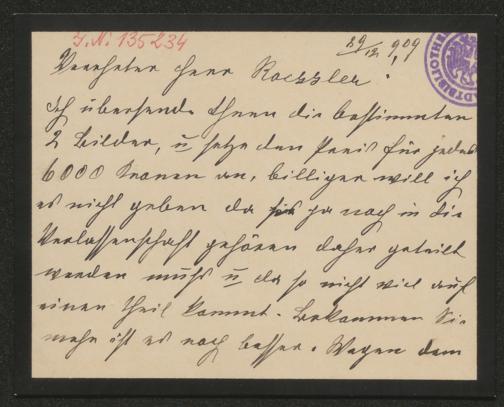 I.N. 135234
29/12 1909
Verehrter Herr Roessler!
Ich übersende Ihnen die bestimmten
2 Bilder, u setze den Preis für jedes
6000 Kronen an, billiger will ich
es nicht geben da sie ja noch in die
Verlassenschaft gehören daher geteilt
werden muss u da so nicht viel auf
einen Theil kommt. Bekommen Sie
mehr ist es noch besser. Wegen dem